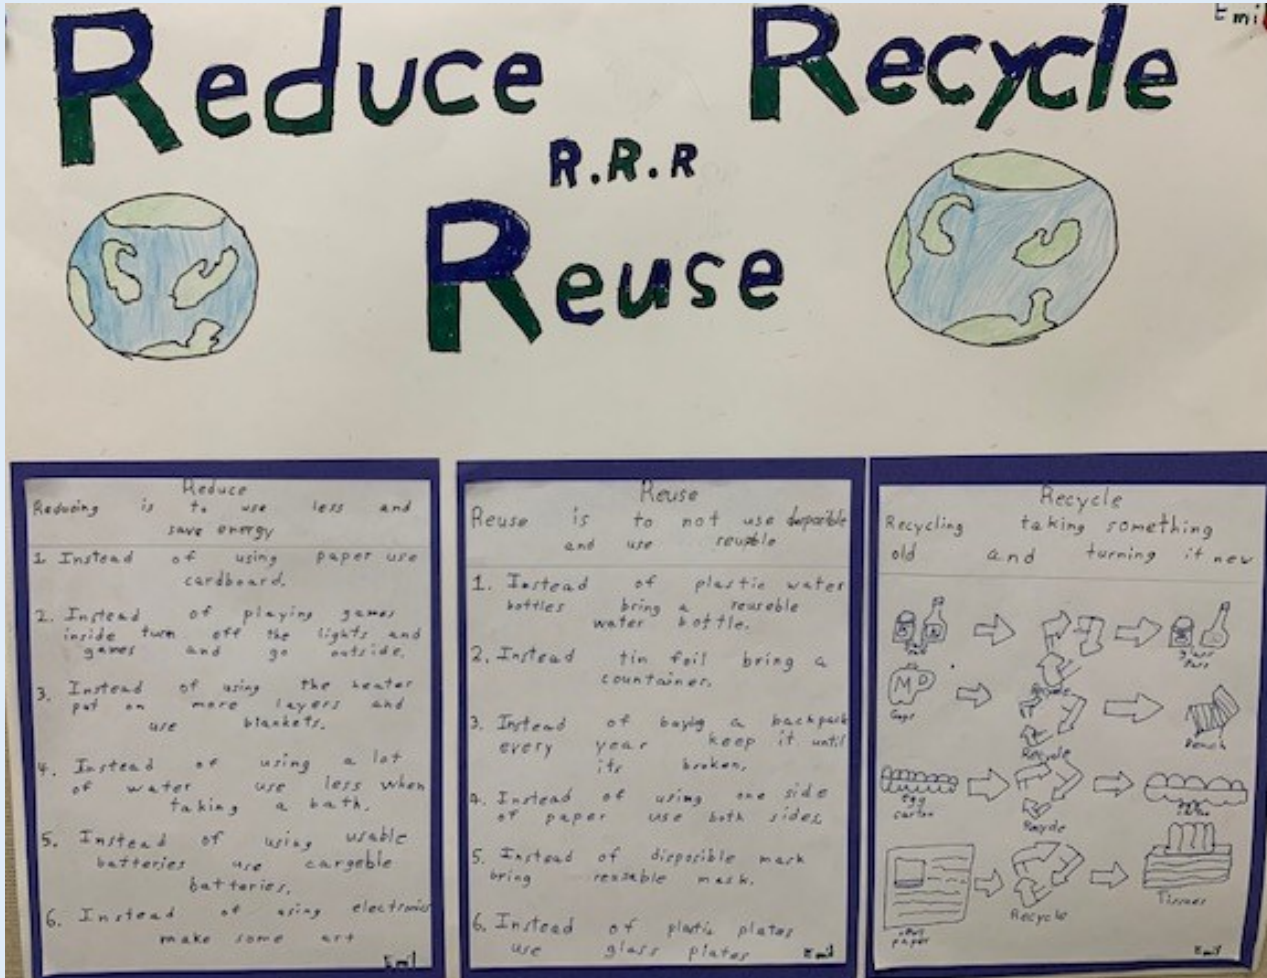 Emil
Reduce Recycle
R.R.R
Reuse
Reduce
Reducing is to use less and
save energy
1. Instead of using paper use
cardboard.
2. Instead of playing games
inside turn off the lights and
games and go outside.
3. Instead of using the heater
put on more layers and
use blankets.
4. Instead of using a lot
of water use less when
taking a bath.
5. Instead of using usable
batteries use cargeble
batteries.
6. Instead of using electronics
make some art
Emil
Reuse
Reuse is to not use disposible
and use
1. Instead of plastic water
bottles bring a reuseble
water bottle.
2. Instead tin foil bring a
countainer.
3. Instead of buying a backpack
every year keep it until
its broken.
4. Instead of using one side
of paper use both sides.
5. Instead of disposible mask
bring reusable mask.
6. Instead of plastic plates
use glass plates
Emil
Recycle
Recycling taking something
old and turning it new
glass
MD
Cups
Recycle
Recycle
Egg
carton
Recycle
news
paper
Recycle
Tissues
Emil